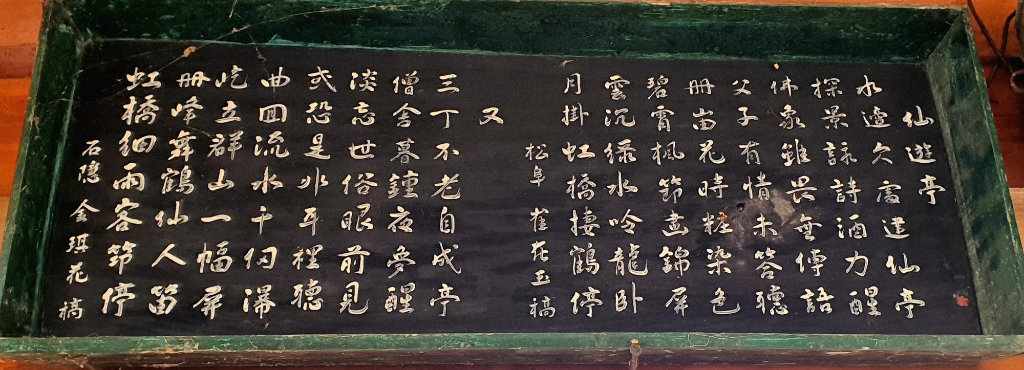 仙遊亭
水邊久處建仙亭
探景詠詩酒力醒
佛象雖畏無傳語
父子有情未答聽
丹崗花時粧染色
碧霄楓節畫錦屏
雲沉綠水吟龍臥
月掛虹橋棲鶴停
松阜 崔在玉 稿
又
三丁不老自成亭
僧舍暮鐘夜夢醒
淡忘世俗眼前見
或恐是非耳裡聽
曲回流水千仞瀑
屹立群山一幅屏
丹峰舞鶴仙人笛
虹橋細雨客節停
石隱 金琪花 稿